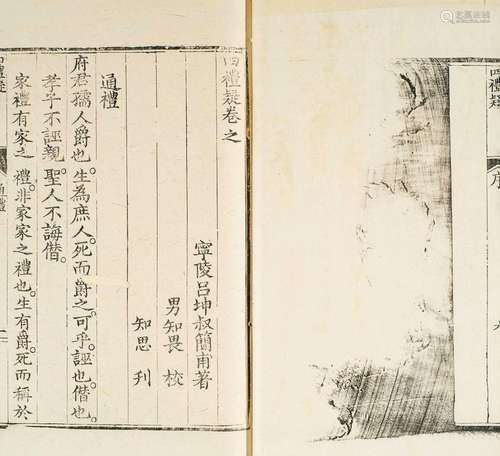 四禮疑
序
四禮疑卷之
寧陵呂坤叔簡甫著
男知畏 校
知思 刋
通禮
府君孺人爵也。生為庶人。死而爵之。可乎。誣也。僭也。
孝子不誣親。聖人不誨僭。
家禮有家之禮。非家家之禮也。生有爵。死而稱於
四禮疑
通禮